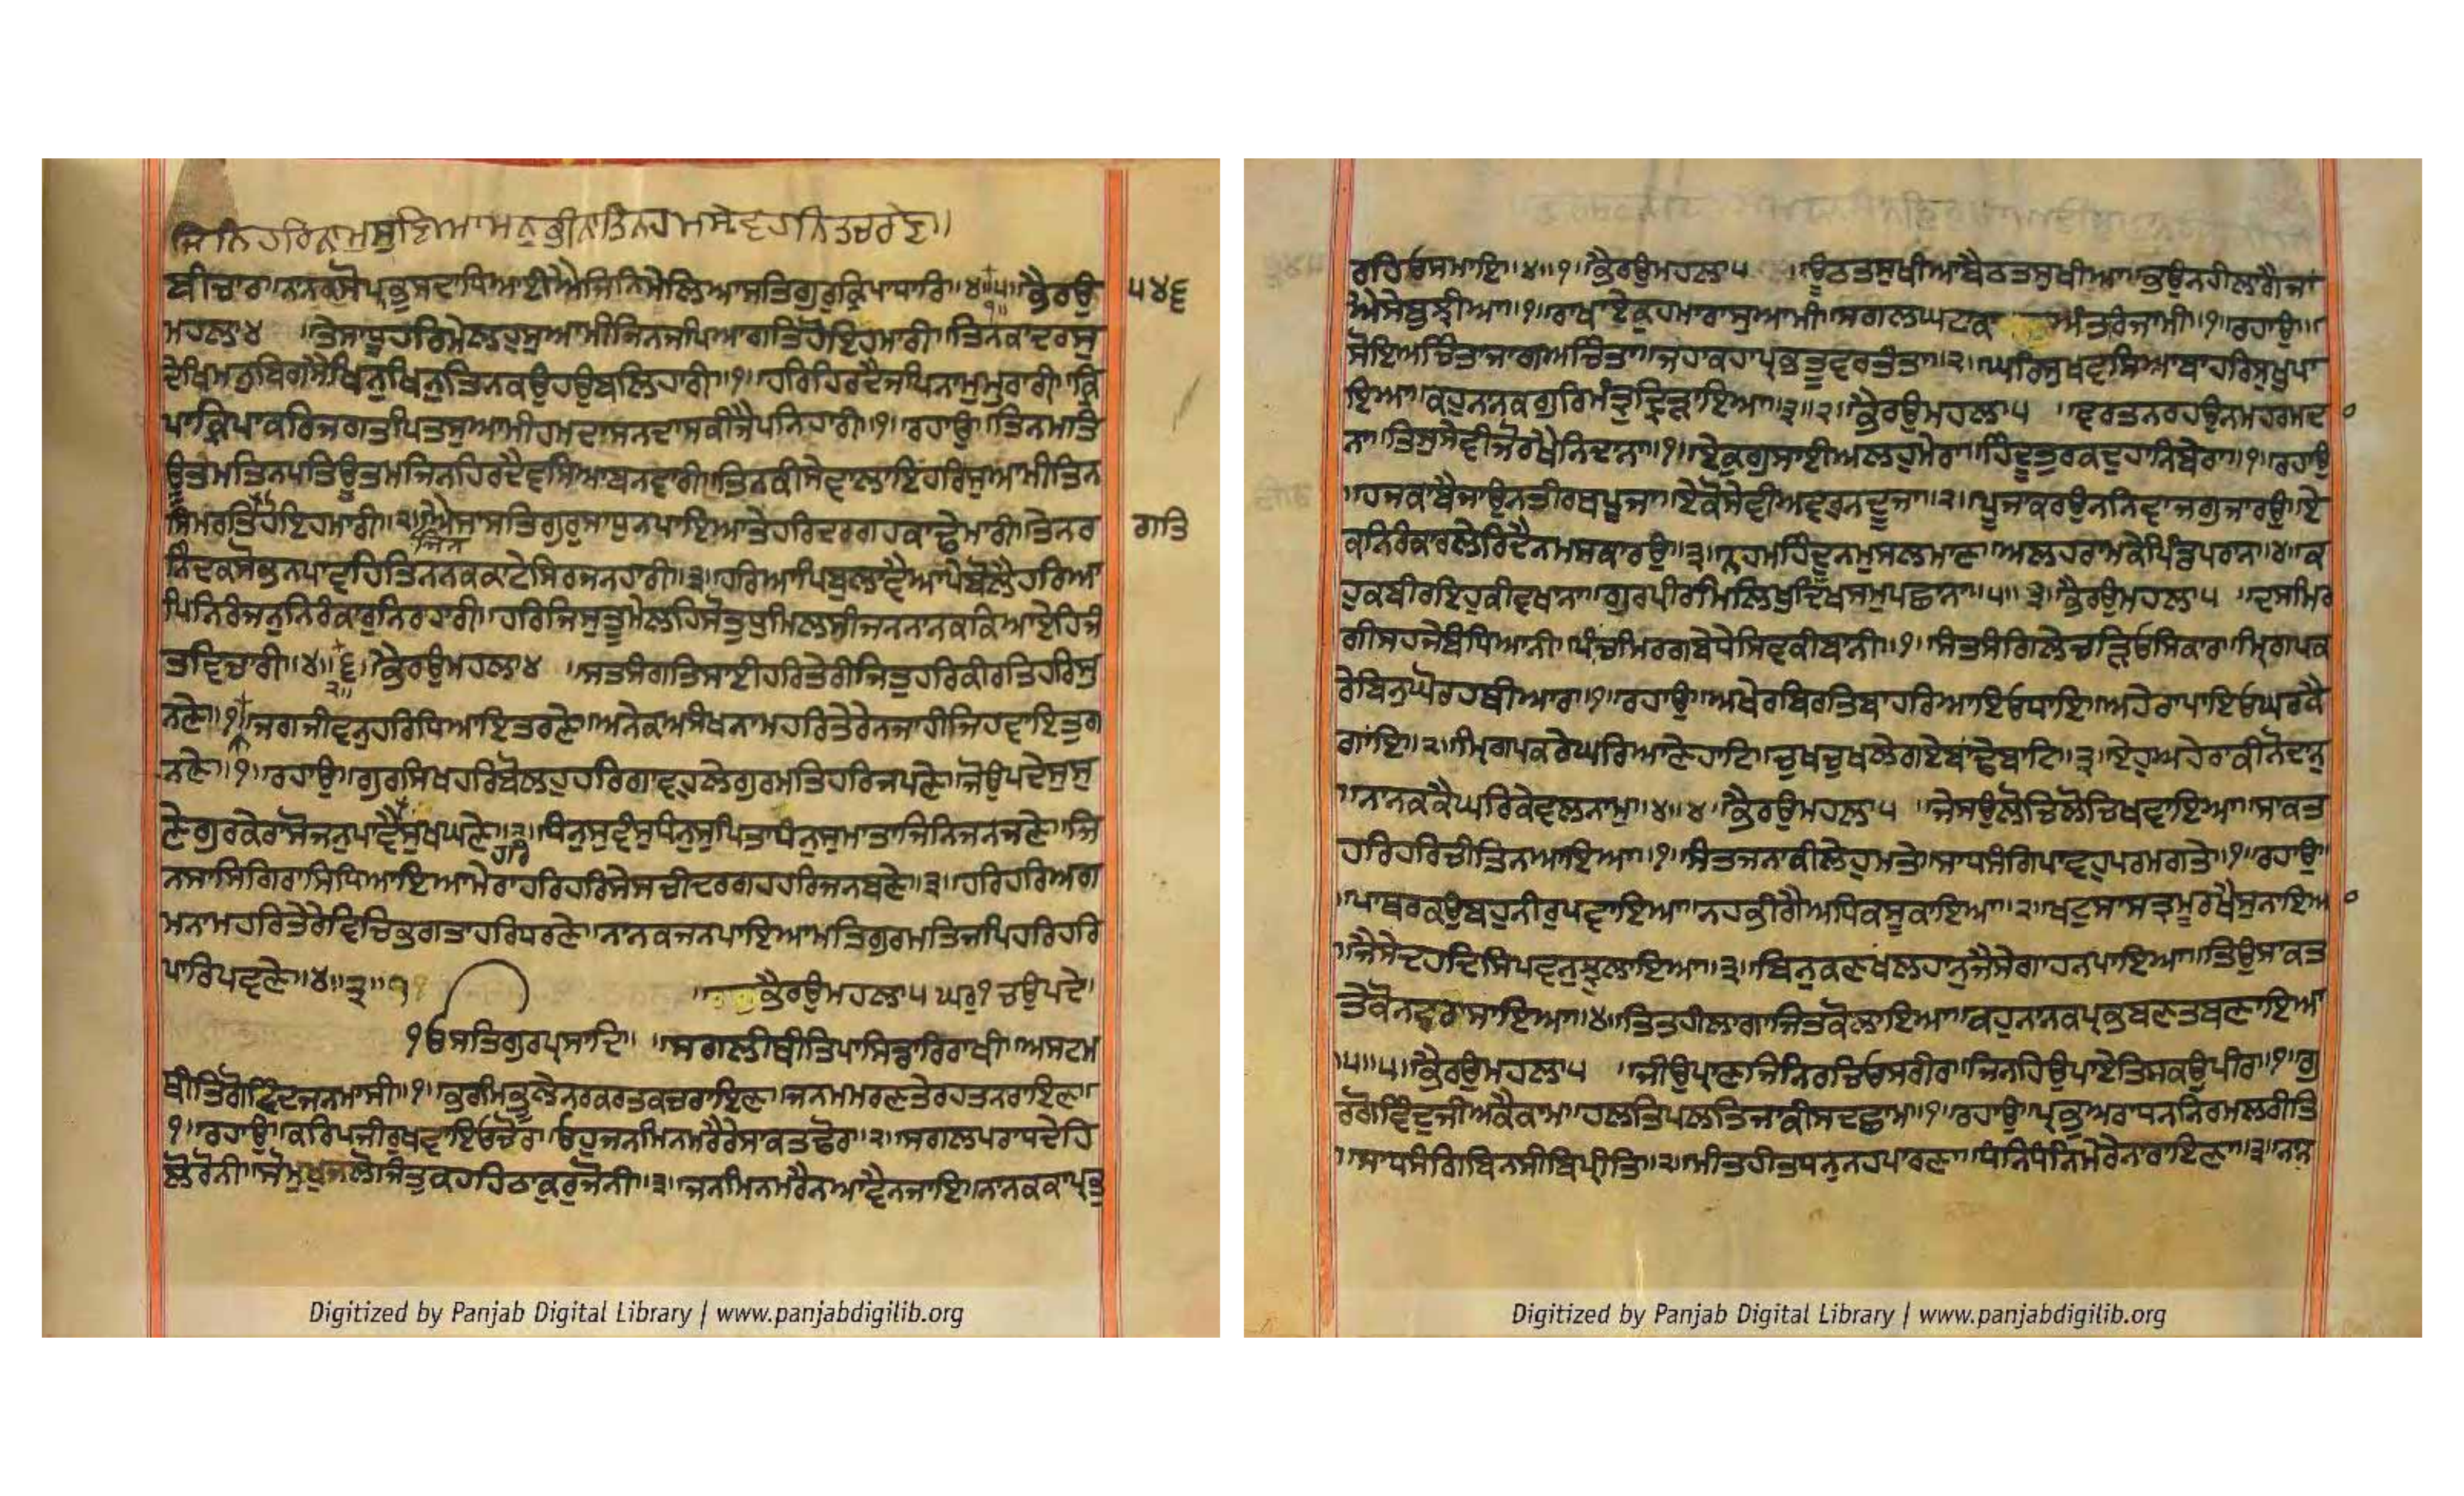 ਜਿਨਿ ਹਰਿ ਨਾਮੁ ਸੁਣਿਆ ਮਨੁ ਭੀਨਾ ਤਿਨ ਹਮ ਸ੍ਰੇਵਹ ਨਿਤ ਚਰਣੇ॥
ਬੀਚਾਰਾ ਨਾਨਕ ਸੋ ਪ੍ਰਭੁ ਸਦਾ ਧਿਆਈਐ ਜਿਨਿ ਮੇਲਿਆ ਸਤਿਗੁਰੁ ਕ੍ਰਿਪਾ ਧਾਰਿ॥੪॥੫॥ ਭੈਰਉ ੫੪੬
ਮਹਲਾ ੪ ॥ ਤੇ ਸਾਧੂ ਹਰਿ ਮੇਲਹੁ ਸੁਆਮੀ ਜਿਨ ਜਪਿਆ ਗਤਿ ਹੋਇ ਹਮਾਰੀ॥ ਤਿਨ ਕਾ ਦਰਸੁ
ਦੇਖਿ ਮਨੁ ਬਿਗਸੈ ਖਿਨੁ ਖਿਨੁ ਤਿਨ ਕਉ ਹਉ ਬਲਿਹਾਰੀ॥੧॥ ਹਰਿ ਹਿਰਦੈ ਜਪਿ ਨਾਮੁ ਮੁਰਾਰੀ॥ ਕ੍ਰਿ
ਪਾ ਕ੍ਰਿਪਾ ਕਰਿ ਜਗਤ ਪਿਤ ਸੁਆਮੀ ਹਮ ਦਾਸਨਿ ਦਾਸ ਕੀਜੈ ਪਨਿਹਾਰੀ॥੧॥ ਰਹਾਉ॥ ਤਿਨ ਮਤਿ
ਊਤਮ ਤਿਨ ਪਤਿ ਊਤਮ ਜਿਨ ਹਿਰਦੈ ਵਸਿਆ ਬਨਵਾਰੀ॥ ਤਿਨ ਕੀ ਸੇਵਾ ਲਾਇ ਹਰਿ ਸੁਆਮੀ ਤਿਨ
ਸਿਮਰਤ ਹੋਇ ਹਮਾਰੀ॥੨॥ ਜਿਨ ਐਸਾ ਸਤਿਗੁਰੁ ਸਾਧੁ ਨ ਪਾਇਆ ਤੇ ਹਰਿ ਦਰਗਹ ਕਾਢੇ ਮਾਰੀ॥ ਤੇ ਨਰ ਗਤਿ
ਨਿੰਦਕ ਸੋਭ ਨ ਪਾਵਹਿ ਤਿਨ ਨਕ ਕਾਟੇ ਸਿਰਜਨਹਾਰੀ॥੩॥ ਹਰਿ ਆਪਿ ਬੁਲਾਵੈ ਆਪੇ ਬੋਲੈ ਹਰਿ ਆ
ਪਿ ਨਿਰੰਜਨੁ ਨਿਰੰਕਾਰੁ ਨਿਰਹਾਰੀ॥ ਹਰਿ ਜਿਸੁ ਤੂ ਮੇਲਹਿ ਸੋ ਤੁਧੁ ਮਿਲਸੀ ਜਨ ਨਾਨਕ ਕਿਆ ਏਹਿ ਜੰ
ਤ ਵਿਚਾਰੀ॥੪॥੨॥੬॥ ਭੈਰਉ ਮਹਲਾ ੪ ॥ ਸਤਸੰਗਤਿ ਸਾਈ ਹਰਿ ਤੇਰੀ ਜਿਤੁ ਹਰਿ ਕੀਰਤਿ ਹਰਿ ਸੁ
ਨਣੇ॥੧॥ ਜਗਜੀਵਨੁ ਹਰਿ ਧਿਆਇ ਤਰਣੇ॥ ਅਨੇਕ ਅਸੰਖ ਨਾਮ ਹਰਿ ਤੇਰੇ ਨ ਜਾਹੀ ਜਿਹਵਾ ਇਤੁ ਗ
ਨਣੇ॥੧॥ ਰਹਾਉ॥ ਗੁਰਸਿਖ ਹਰਿ ਬੋਲਹੁ ਹਰਿ ਗਾਵਹੁ ਲੇ ਗੁਰਮਤਿ ਹਰਿ ਜਪਣੇ॥ ਜੋ ਉਪਦੇਸੁ ਸੁ
ਣੇ ਗੁਰ ਕੇਰਾ ਸੋ ਜਨੁ ਪਾਵੈ ਸੁਖ ਘਣੇ॥੨॥ ਧੰਨੁ ਸੁ ਵੰਸੁ ਧੰਨੁ ਸੁ ਪਿਤਾ ਧੰਨੁ ਸੁ ਮਾਤਾ ਜਿਨਿ ਜਨ ਜਣੇ॥ ਜਿ
ਨ ਸਾਸਿ ਗਿਰਾਸਿ ਧਿਆਇਆ ਮੇਰਾ ਹਰਿ ਹਰਿ ਸੇ ਸਾਚੀ ਦਰਗਹ ਹਰਿ ਜਨ ਬਣੇ॥੩॥ ਹਰਿ ਹਰਿ ਅਗ
ਮ ਨਾਮ ਹਰਿ ਤੇਰੇ ਵਿਚਿ ਭਗਤਾ ਹਰਿ ਧਰਣੇ॥ ਨਾਨਕ ਜਨਿ ਪਾਇਆ ਮਤਿ ਗੁਰਮਤਿ ਜਪਿ ਹਰਿ ਹਰਿ
ਪਾਰਿ ਪਵਣੇ॥੪॥੩॥ ॥ ਭੈਰਉ ਮਹਲਾ ੫ ਘਰੁ ੧ ਚਉਪਦੇ
ੴ ਸਤਿਗੁਰ ਪ੍ਰਸਾਦਿ॥ ਸਗਲੀ ਥੀਤਿ ਪਾਸਿ ਡਾਰਿ ਰਾਖੀ॥ ਅਸਟਮ
ਥੀਤਿ ਗੋਵਿੰਦ ਜਨਮਾਸੀ॥੧॥ ਭਰਮਿ ਭੂਲੇ ਨਰ ਕਰਤ ਕਚਰਾਇਣ॥ ਜਨਮ ਮਰਣ ਤੇ ਰਹਤ ਨਾਰਾਇਣ॥
੧॥ ਰਹਾਉ॥ ਕਰਿ ਪੰਜੀਰੁ ਖਵਾਇਓ ਚੋਰ॥ ਓਹੁ ਜਨਮਿ ਨ ਮਰੈ ਰੇ ਸਾਕਤ ਢੋਰ॥੨॥ ਸਗਲ ਪਰਾਧ ਦੇਹਿ
ਲੋਰੋਨੀ॥ ਸੋ ਮੁਖੁ ਜਲੋ ਜਿਤੁ ਕਹਹਿ ਠਾਕੁਰੁ ਜੋਨੀ॥੩॥ ਜਨਮਿ ਨ ਮਰੈ ਨ ਆਵੈ ਨ ਜਾਇ॥ ਨਾਨਕ ਕਾ ਪ੍ਰਭੁ
ਰਹਿਓ ਸਮਾਇ॥੪॥੧॥ ਭੈਰਉ ਮਹਲਾ ੫ ॥ ਊਠਤ ਸੁਖੀਆ ਬੈਠਤ ਸੁਖੀਆ॥ ਭਉ ਨਹੀ ਲਾਗੈ ਜਾਂ
ਐਸੇ ਬੁਝੀਆ॥੧॥ ਰਾਖਾ ਏਕੁ ਹਮਾਰਾ ਸੁਆਮੀ॥ ਸਗਲ ਘਟਾ ਕਾ ਅੰਤਰਜਾਮੀ॥੧॥ ਰਹਾਉ॥
ਸੋਇ ਅਚਿੰਤਾ ਜਾਗਿ ਅਚਿੰਤਾ॥ ਜਹਾ ਕਹਾ ਪ੍ਰਭੁ ਤੂੰ ਵਰਤੰਤਾ॥੨॥ ਘਰਿ ਸੁਖਿ ਵਸਿਆ ਬਾਹਰਿ ਸੁਖੁ ਪਾ
ਇਆ॥ ਕਹੁ ਨਾਨਕ ਗੁਰਿ ਮੰਤ੍ਰੁ ਦ੍ਰਿੜਾਇਆ॥੩॥੨॥ ਭੈਰਉ ਮਹਲਾ ੫ ॥ ਵਰਤ ਨ ਰਹਉ ਨ ਮਹ ਰਮਦਾ
ਨਾ॥ ਤਿਸੁ ਸੇਵੀ ਜੋ ਰਖੈ ਨਿਦਾਨਾ॥੧॥ ਏਕੁ ਗੁਸਾਈ ਅਲਹੁ ਮੇਰਾ॥ ਹਿੰਦੂ ਤੁਰਕ ਦੁਹਾਂ ਨੇਬੇਰਾ॥੧॥ ਰਹਾਉ
॥ ਹਜ ਕਾਬੈ ਜਾਉ ਨ ਤੀਰਥ ਪੂਜਾ॥ ਏਕੋ ਸੇਵੀ ਅਵਰੁ ਨ ਦੂਜਾ॥੨॥ ਪੂਜਾ ਕਰਉ ਨ ਨਿਵਾਜ ਗੁਜਾਰਉ॥ ਏ
ਕ ਨਿਰੰਕਾਰ ਲੇ ਰਿਦੈ ਨਮਸਕਾਰਉ॥੩॥ ਨਾ ਹਮ ਹਿੰਦੂ ਨ ਮੁਸਲਮਾਨ॥ ਅਲਹ ਰਾਮ ਕੇ ਪਿੰਡੁ ਪਰਾਨ॥੪॥ ਕ
ਹੁ ਕਬੀਰ ਇਹੁ ਕੀਆ ਵਖਾਨਾ॥ ਗੁਰ ਪੀਰ ਮਿਲਿ ਖੁਦਿ ਖਸਮੁ ਪਛਾਨਾ॥੫॥੩॥ ਭੈਰਉ ਮਹਲਾ ੫ ॥ ਦਸ ਮਿਰ
ਗੀ ਸਹਜੇ ਬੰਧਿ ਆਨੀ॥ ਪਾਂਚ ਮਿਰਗ ਬੇਧੇ ਸਿਵ ਕੀ ਬਾਨੀ॥੧॥ ਸੰਤਸੰਗਿ ਲੇ ਚੜਿਓ ਸਿਕਾਰ॥ ਮ੍ਰਿਗ ਪਕ
ਰੇ ਬਿਨੁ ਘੋਰ ਹਥੀਆਰ॥੧॥ ਰਹਾਉ॥ ਆਖੇਰ ਬਿਰਤਿ ਬਾਹਰਿ ਆਇਓ ਧਾਇ॥ ਅਹੇਰਾ ਪਾਇਓ ਘਰ ਕੈ
ਗਾਂਇ॥੨॥ ਮ੍ਰਿਗ ਪਕਰੇ ਘਰਿ ਆਣੇ ਹਾਟਿ॥ ਚੁਖ ਚੁਖ ਲੇ ਗਏ ਬਾਂਢੇ ਬਾਟਿ॥੩॥ ਏਹੁ ਅਹੇਰਾ ਕੀਨੋ ਦਾਨੁ
॥ ਨਾਨਕ ਕੈ ਘਰਿ ਕੇਵਲ ਨਾਮੁ॥੪॥੪॥ ਭੈਰਉ ਮਹਲਾ ੫ ॥ ਜੇ ਸਉ ਲੋਚਿ ਲੋਚਿ ਖਵਾਇਆ॥ ਸਾਕਤ
ਹਰਿ ਹਰਿ ਚੀਤਿ ਨ ਆਇਆ॥੧॥ ਸੰਤ ਜਨਾ ਕੀ ਲੇਹੁ ਮਤੇ॥ ਸਾਧਸੰਗਿ ਪਾਵਹੁ ਪਰਮ ਗਤੇ॥੧॥ ਰਹਾਉ
॥ ਪਾਥਰ ਕਉ ਬਹੁ ਨੀਰੁ ਪਵਾਇਆ॥ ਨਹ ਭੀਗੈ ਅਧਿਕ ਸੂਕਾਇਆ॥੨॥ ਖਟੁ ਸਾਸਤ੍ਰ ਮੂਰਖੈ ਸੁਨਾਇਆ
॥ ਜੈਸੇ ਦਹ ਦਿਸ ਪਵਨੁ ਝੁਲਾਇਆ॥੩॥ ਬਿਨੁ ਕਣ ਖਲਹਾਨੁ ਜੈਸੇ ਗਾਹਨ ਪਾਇਆ॥ ਤਿਉ ਸਾਕਤ
ਤੇ ਕੋ ਨ ਬਰਾਸਾਇਆ॥੪॥ ਤਿਤ ਹੀ ਲਾਗਾ ਜਿਤੁ ਕੋ ਲਾਇਆ॥ ਕਹੁ ਨਾਨਕ ਪ੍ਰਭਿ ਬਣਤ ਬਣਾਇਆ
॥੫॥੫॥ ਭੈਰਉ ਮਹਲਾ ੫ ॥ ਜੀਉ ਪ੍ਰਾਣ ਜਿਨਿ ਰਚਿਓ ਸਰੀਰ॥ ਜਿਨਹਿ ਉਪਾਏ ਤਿਸ ਕਉ ਪੀਰ॥੧॥ ਗੁ
ਰੁ ਗੋਬਿੰਦੁ ਜੀਅ ਕੈ ਕਾਮ॥ ਹਲਤਿ ਪਲਤਿ ਜਾ ਕੀ ਸਦ ਛਾਮ॥੧॥ ਰਹਾਉ॥ ਪ੍ਰਭੁ ਅਰਾਧਨ ਨਿਰਮਲ ਰੀਤਿ
॥ ਸਾਧਸੰਗਿ ਬਿਨਸੀ ਬਿਪਰੀਤਿ॥੨॥ ਮੀਤ ਹੀਤ ਧਨੁ ਨਹ ਪਾਰਣਾ॥ ਧੰਨਿ ਧੰਨਿ ਮੇਰੇ ਨਾਰਾਇਣਾ॥੩॥ ਨਾਨ
Digitized by Panjab Digital Library | www.panjabdigilib.org
Digitized by Panjab Digital Library | www.panjabdigilib.org